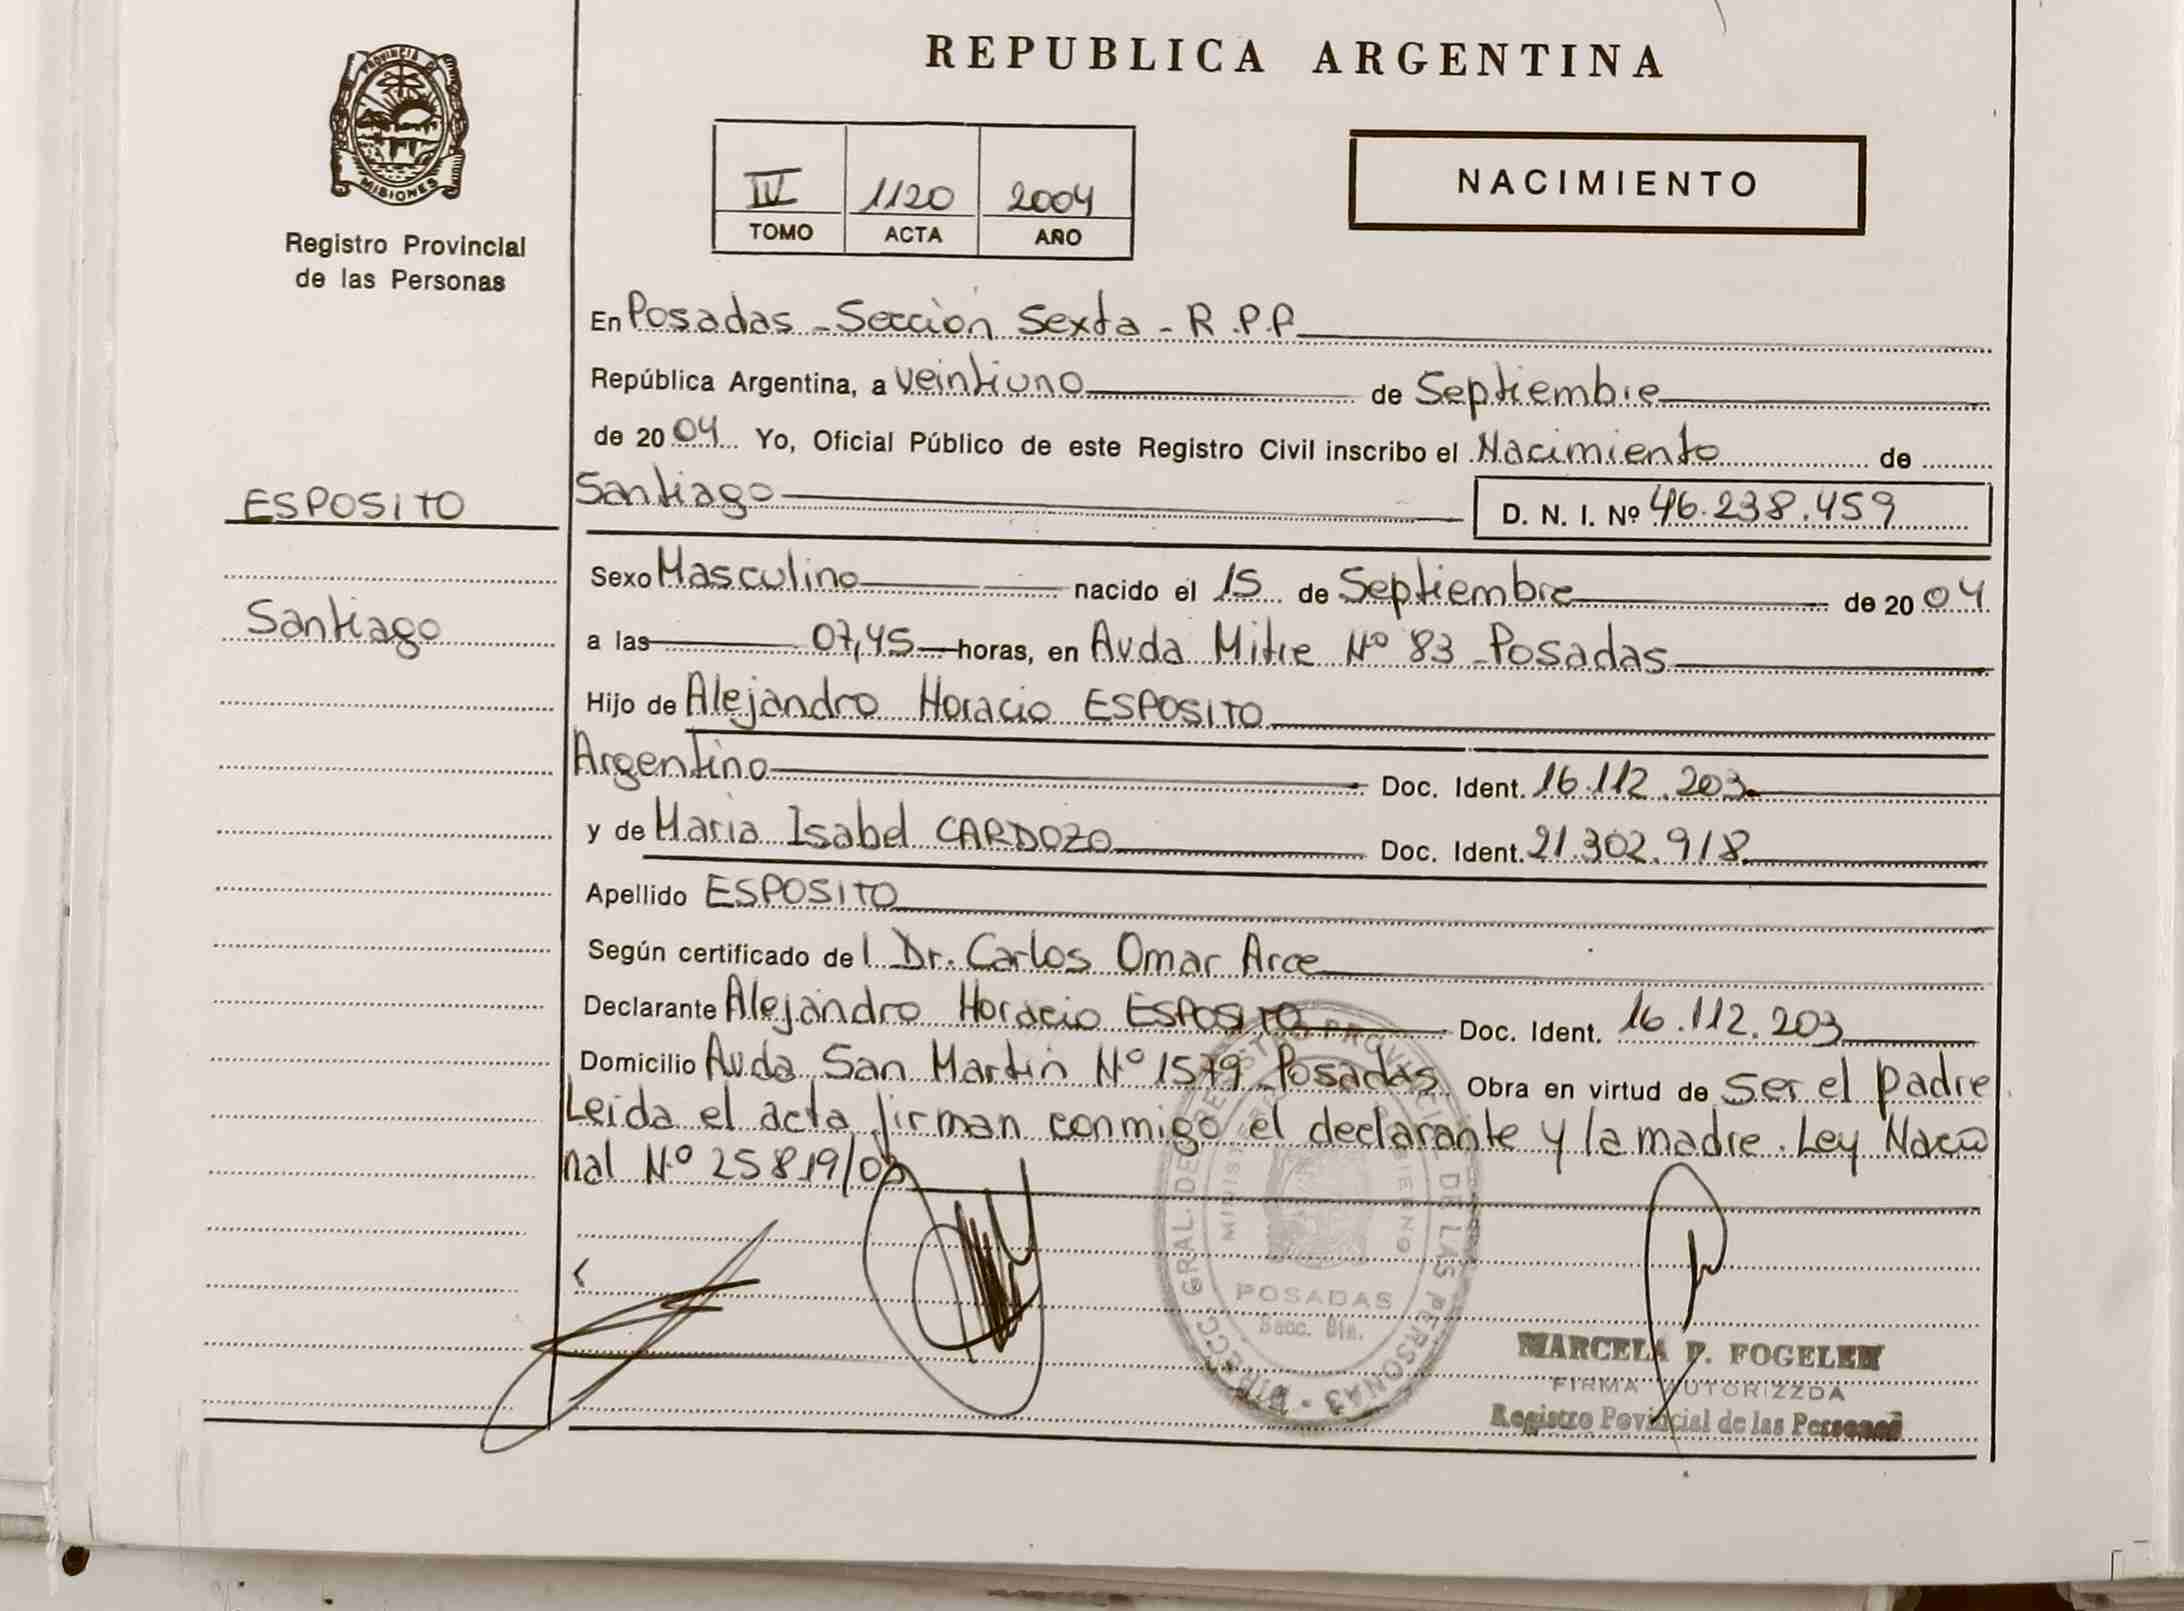 REPUBLICA ARGENTINA
PROVINCIA DE
MISIONES
Registro Provincial
de las Personas
IV 1120 2004
TOMO ACTA AÑO
NACIMIENTO
En Posadas - Sección Sexta - R.P.P.
República Argentina, a veintiuno de Septiembre
de 2004 Yo, Oficial Público de este Registro Civil inscribo el Nacimiento de
ESPOSITO
Santiago
Santiago D. N. I. Nº 46.238.459
Sexo Masculino nacido el 15 de Septiembre de 2004
a las 07,45 horas, en Avda Mitre Nº 83 - Posadas
Hijo de Alejandro Horacio ESPOSITO
Argentino Doc. Ident. 16.112.203
y de Maria Isabel CARDOZO Doc. Ident. 21.302.918
Apellido ESPOSITO
Según certificado del Dr. Carlos Omar Arce
Declarante Alejandro Horacio ESPOSITO Doc. Ident. 16.112.203
Domicilio Avda San Martin Nº 1579 - Posadas Obra en virtud de Ser el padre
Leida el acta firman conmigo el declarante y la madre. Ley Nacio
nal Nº 25819/03
GRAL. DE REGISTRO PROVINCIAL DE LAS PERSONAS
POSADAS
Secc.
MARCELA P. FOGELER
FIRMA AUTORIZZDA
Registro Povincial de las Personas